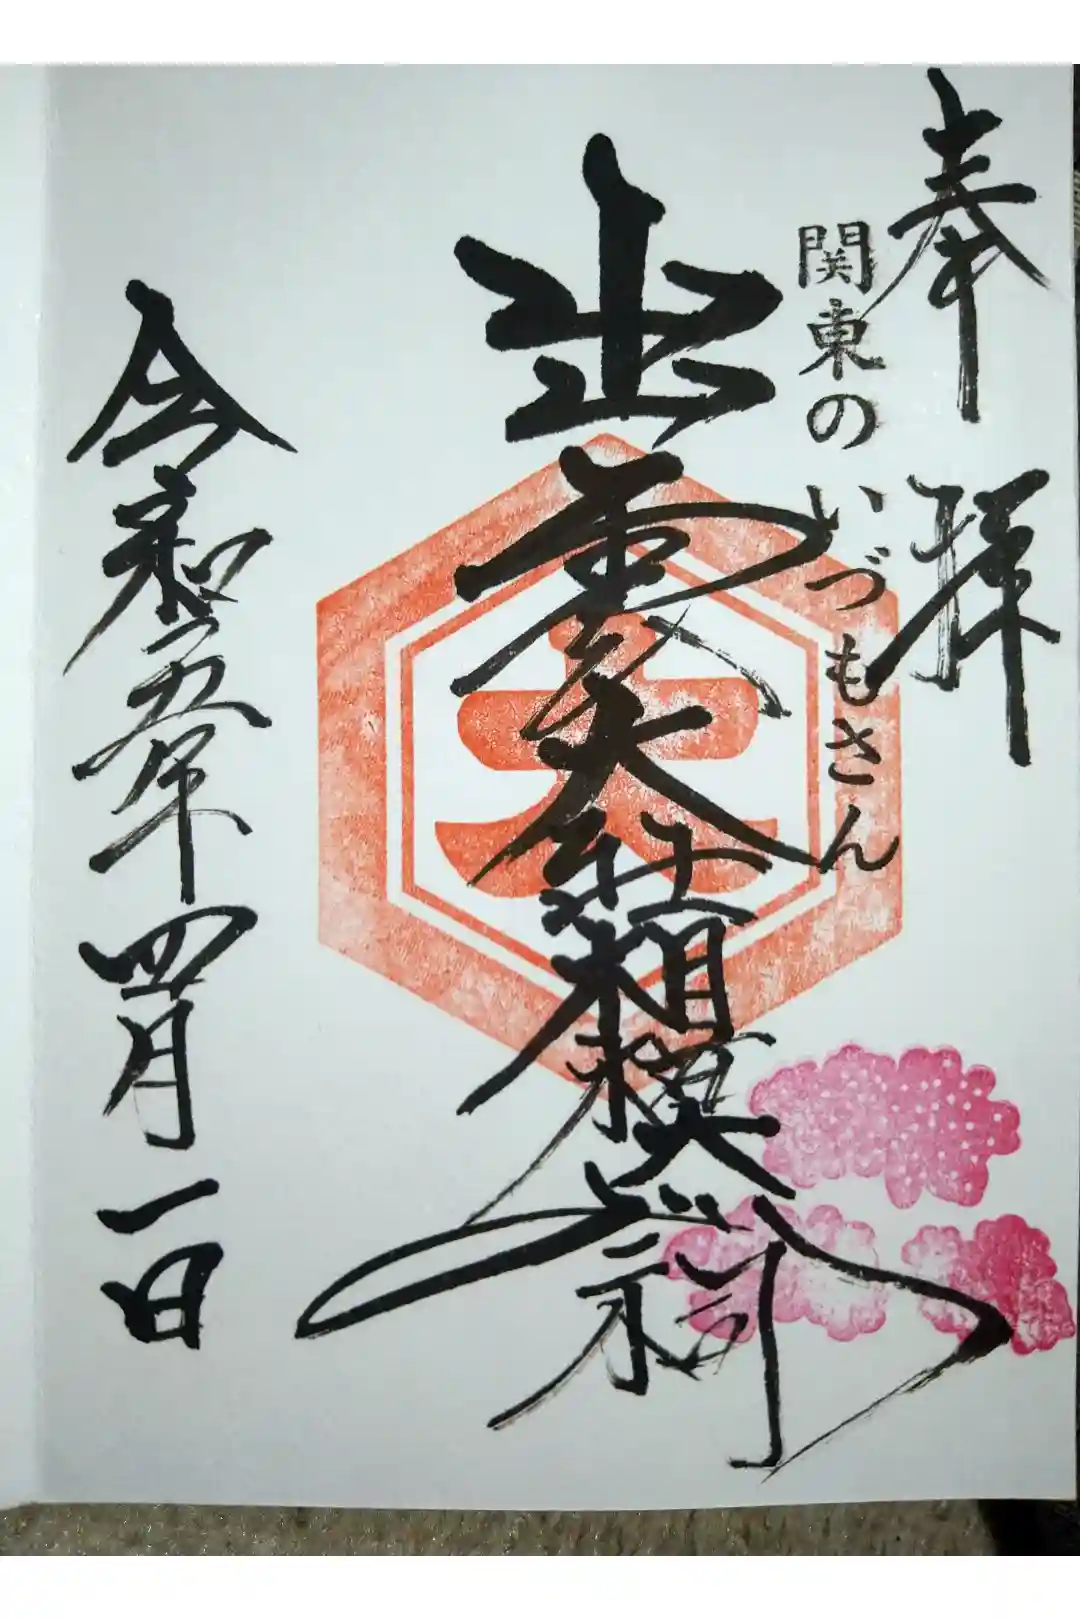 奉拝
関東のいづもさん
出雲大社相模分祠
令和五年四月一日
大